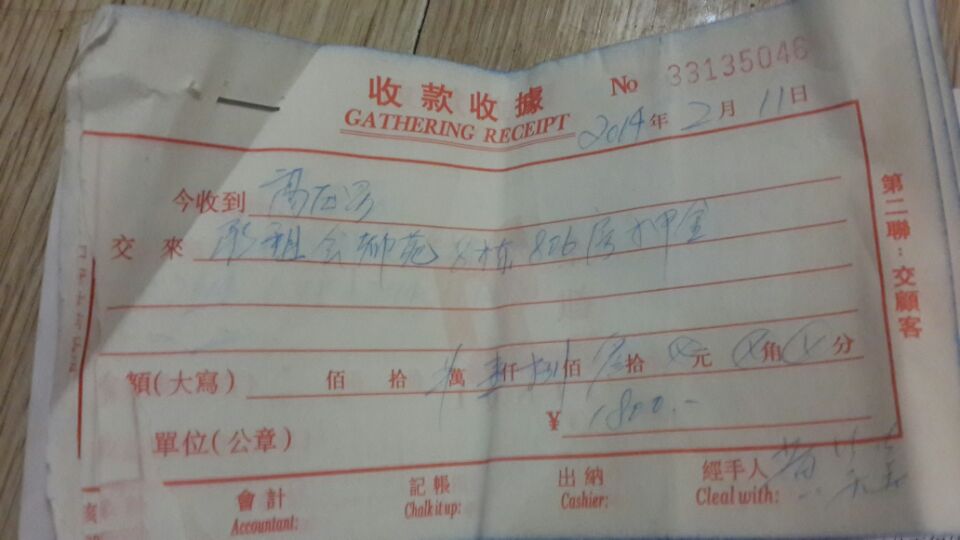 收款收據
No 33135046
GATHERING RECEIPT
2014年2月11日
今收到
交來 租 苑 栋826房押金
額(大寫) 佰 拾 萬 壹仟捌佰 拾 元 角 分
¥ 1800.-
單位(公章)
會計 記帳 出納 經手人
Accountant: Chalk it up: Cashier: Cleal with:
第二聯:交顧客